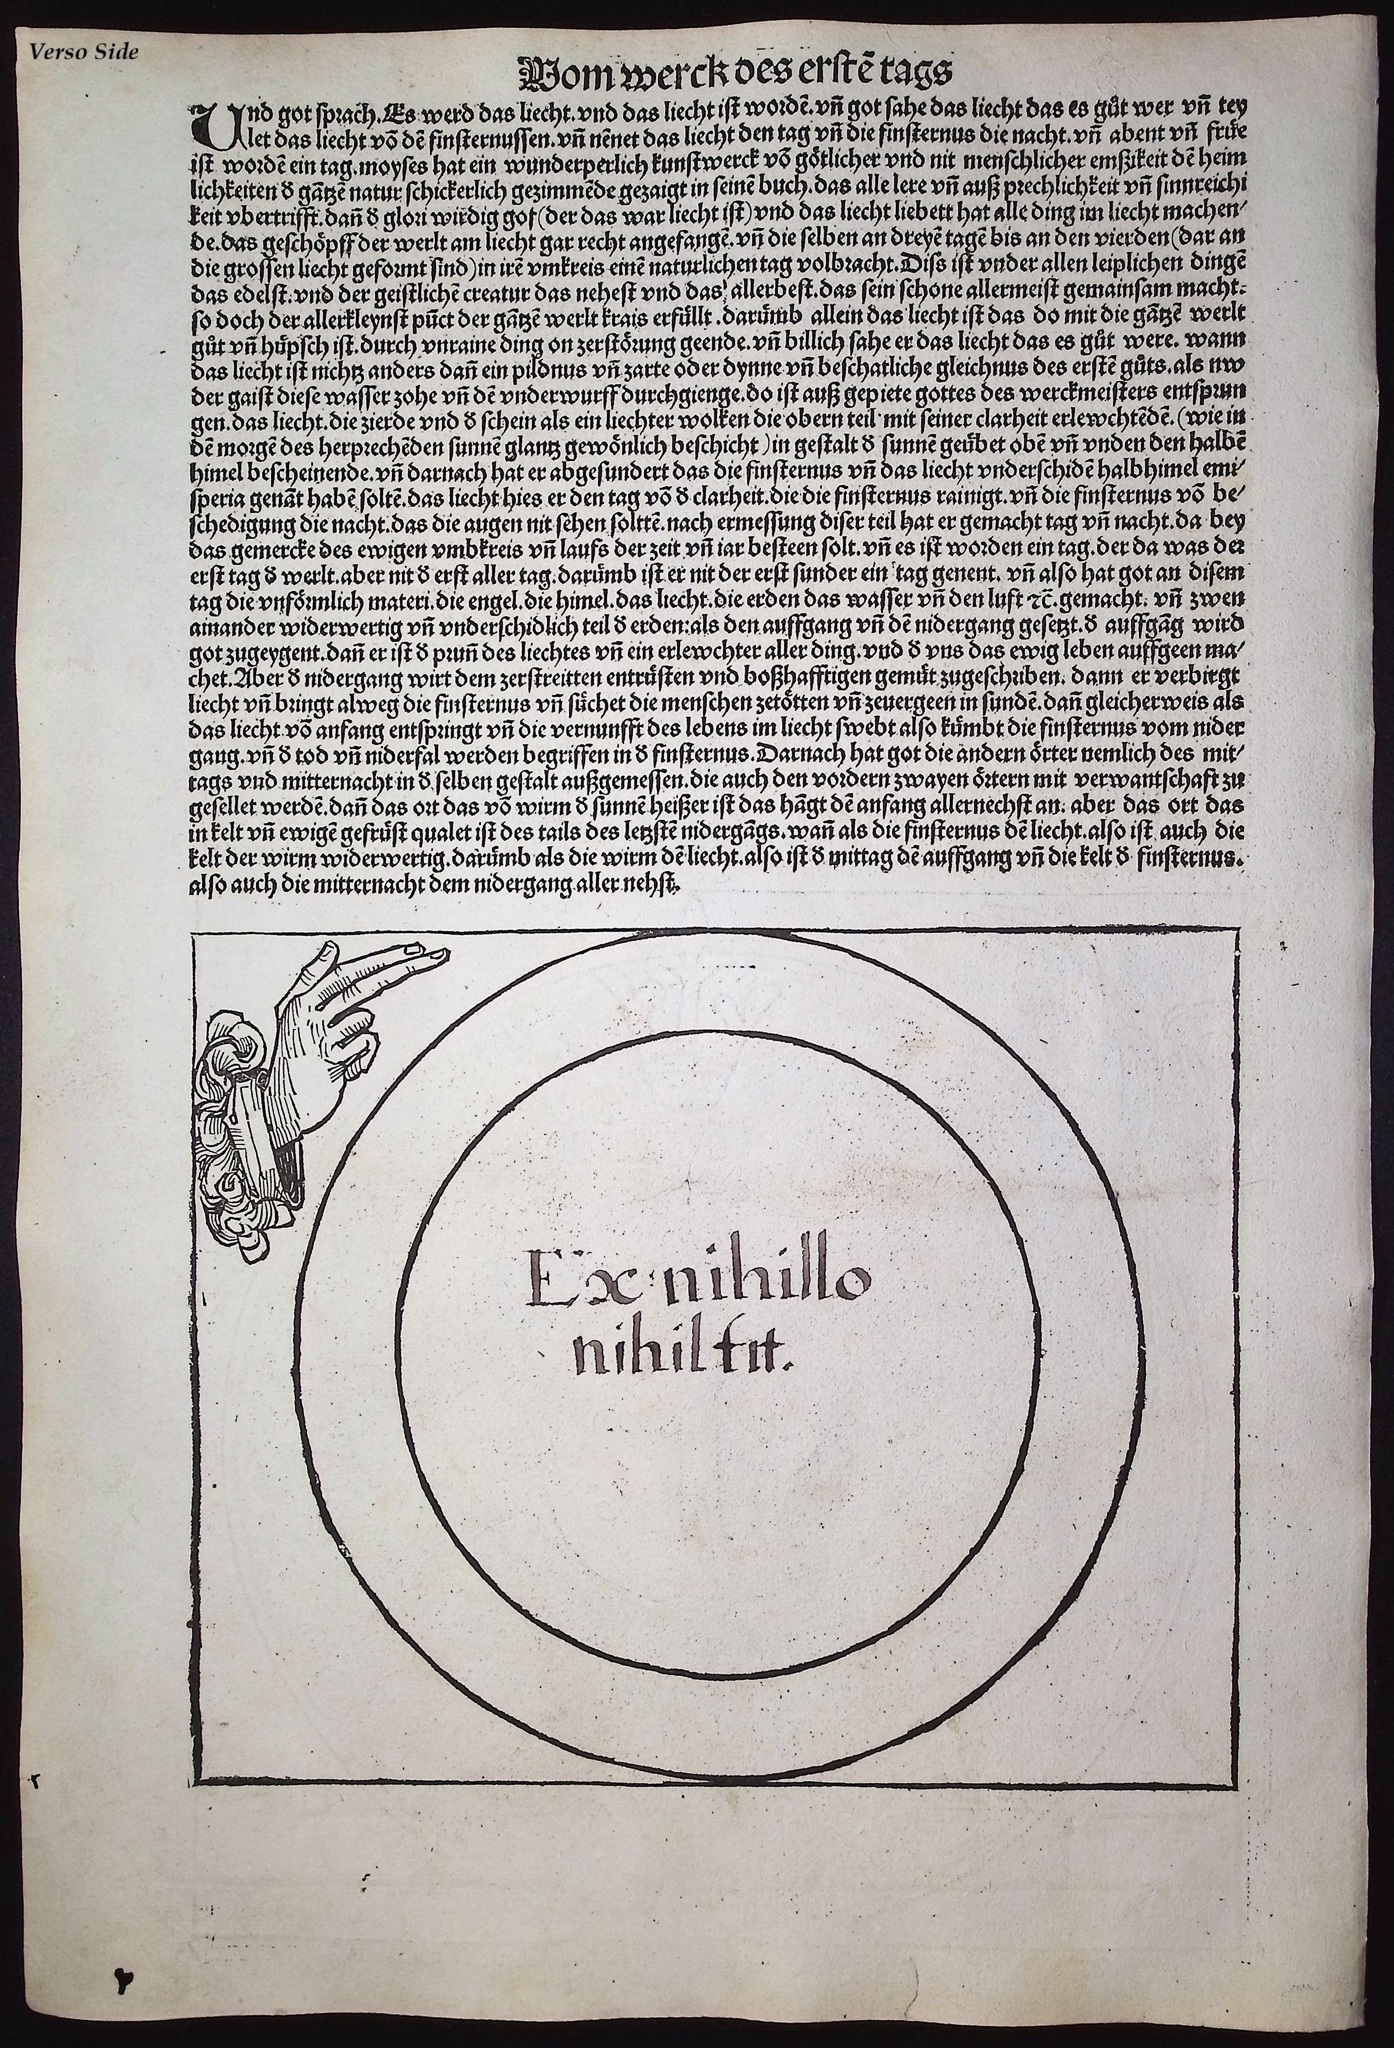 Verso Side
Vom werck des erstẽ tags
Und got sprach. Es werd das liecht. vnd das liecht ist wordẽ. vñ got sahe das liecht das es gůt wer vñ tey
let das liecht võ dẽ finsternussen. vñ nẽnet das liecht den tag vñ die finsternus die nacht. vñ abent vñ früe
ist wordẽ ein tag. moyses hat ein wunderperlich kunstwerck võ götlicher vnd nit menschlicher emßikeit dẽ heim
lichkeiten ď gãtzẽ natur schickerlich gezimmẽde gezaigt in seinẽ buch. das alle lere vñ auß prechlichkeit vñ sinnreichi
keit vbertrifft. dañ ď glori wirdig got (der das war liecht ist) vnd das liecht liebett hat alle ding im liecht machen/
de. das geschöpff der werlt am liecht gar recht angefangẽ. vñ die selben an dreyẽ tagẽ bis an den vierden (dar an
die grossen liecht geformt sind) in irẽ vmkreis einẽ naturlichen tag volbracht. Diss ist vnder allen leiplichen dingẽ
das edelst. vnd der geistlichẽ creatur das nehest vnd das allerbest. das sein schone allermeist gemainsam macht.
so doch der allerkleynst pũct der gãtzẽ werlt krais erfüllt. darũmb allein das liecht ist das do mit die gãtzẽ werlt
gůt vñ hüpsch ist. durch vnraine ding on zerstörung geende. vñ billich sahe er das liecht das es gůt were. wann
das liecht ist nichtz anders dañ ein pildnus vñ zarte oder dynne vñ beschatliche gleichnus des erstẽ gůts. als nw
der gaist diese wasser zohe vñ dẽ vnderwurff durchgienge. do ist auß gepiete gottes des werckmeisters entsprun
gen. das liecht. die zierde vnd ď schein als ein liechter wolken die obern teil mit seiner clarheit erlewchtẽdẽ. (wie in
dẽ morgẽ des herprechẽden sunnẽ glantz gewönlich beschicht) in gestalt ď sunnẽ geübet obẽ vñ vnden den halbẽ
himel bescheinende. vñ darnach hat er abgesundert das die finsternus vñ das liecht vnderschidẽ halbhimel emi/
speria genãt habẽ soltẽ. das liecht hies er den tag võ ď clarheit. die die finsternus rainigt. vñ die finsternus võ be/
schedigung die nacht. das die augen nit sehen solttẽ. nach ermessung diser teil hat er gemacht tag vñ nacht. da bey
das gemercke des ewigen vmbkreis vñ laufs der zeit vñ iar besteen solt. vñ es ist worden ein tag. der da was der
erst tag ď werlt. aber nit ď erst aller tag. darũmb ist er nit der erst sunder ein tag genent. vñ also hat got an disem
tag die vnförmlich materi. die engel. die himel. das liecht. die erden das wasser vñ den luft ⁊c̃. gemacht. vñ zwen
ainander widerwertig vñ vnderschidlich teil ď erden: als den auffgang vñ dẽ nidergang gesetzt. ď auffgãg wird
got zugeygent. dañ er ist ď prunñ des liechtes vñ ein erlewchter aller ding. vnd ď vns das ewig leben auffgeen ma/
chet. Aber ď nidergang wirt dem zerstreitten entrüsten vnd boßhafftigen gemüt zugeschriben. dann er verbirgt
liecht vñ bringt alweg die finsternus vñ süchet die menschen zetötten vñ zeuergeen in sundẽ. dañ gleicherweis als
das liecht võ anfang entspringt vñ die vernunfft des lebens im liecht swebt also kümbt die finsternus vom nider
gang. vñ ď tod vñ niderfal werden begriffen in ď finsternus. Darnach hat got die andern örter nemlich des mit/
tags vnd mitternacht in ď selben gestalt außgemessen. die auch den vordern zwayen örtern mit verwantschaft zu
gesellet werdẽ. dañ das ort das võ wirm ď sunnẽ heißer ist das hãgt dẽ anfang allernechst an. aber das ort das
in kelt vñ ewigẽ gefrüst qualet ist des tails des letzstẽ nidergãgs. wañ als die finsternus dẽ liecht. also ist auch die
kelt der wirm widerwertig. darũmb als die wirm dẽ liecht. also ist ď mittag dẽ auffgang vñ die kelt ď finsternus.
also auch die mitternacht dem nidergang aller nehst.
Ex nihillo
nihil fit.